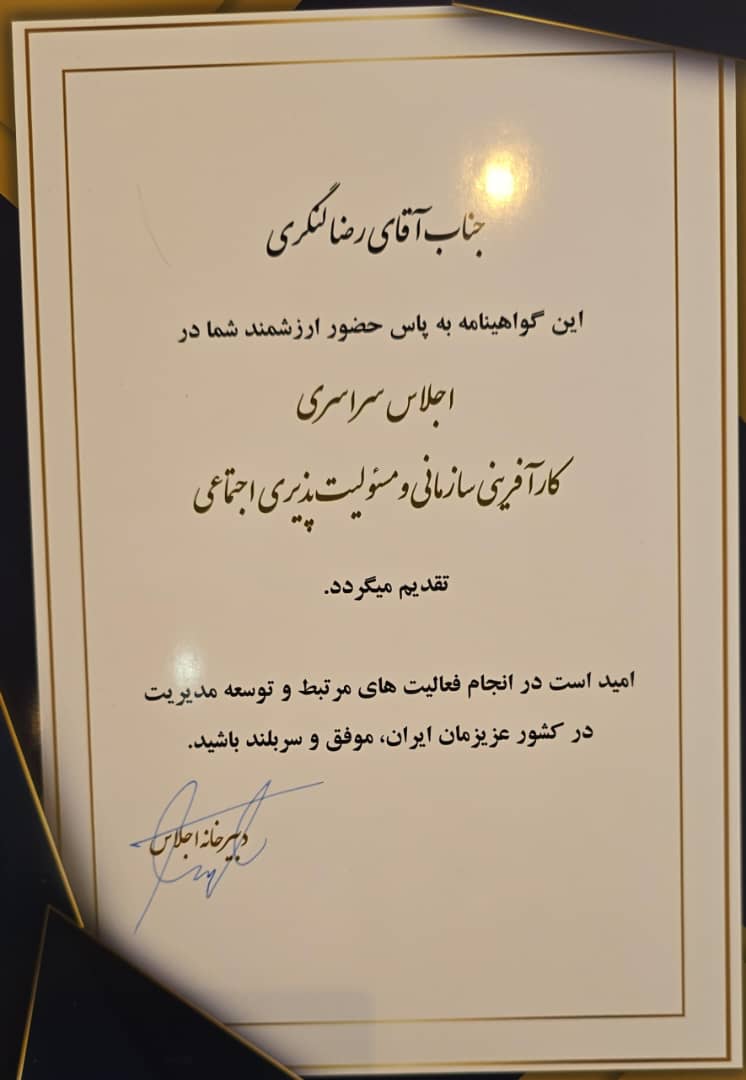 جناب آقای رضا لنگری
این گواهینامه به پاس حضور ارزشمند شما در
اجلاس سراسری
کارآفرینی سازمانی و مسئولیت پذیری اجتماعی
تقدیم میگردد.
امید است در انجام فعالیت های مرتبط و توسعه مدیریت
در کشور عزیزمان ایران، موفق و سربلند باشید.
دبیرخانه اجلاس